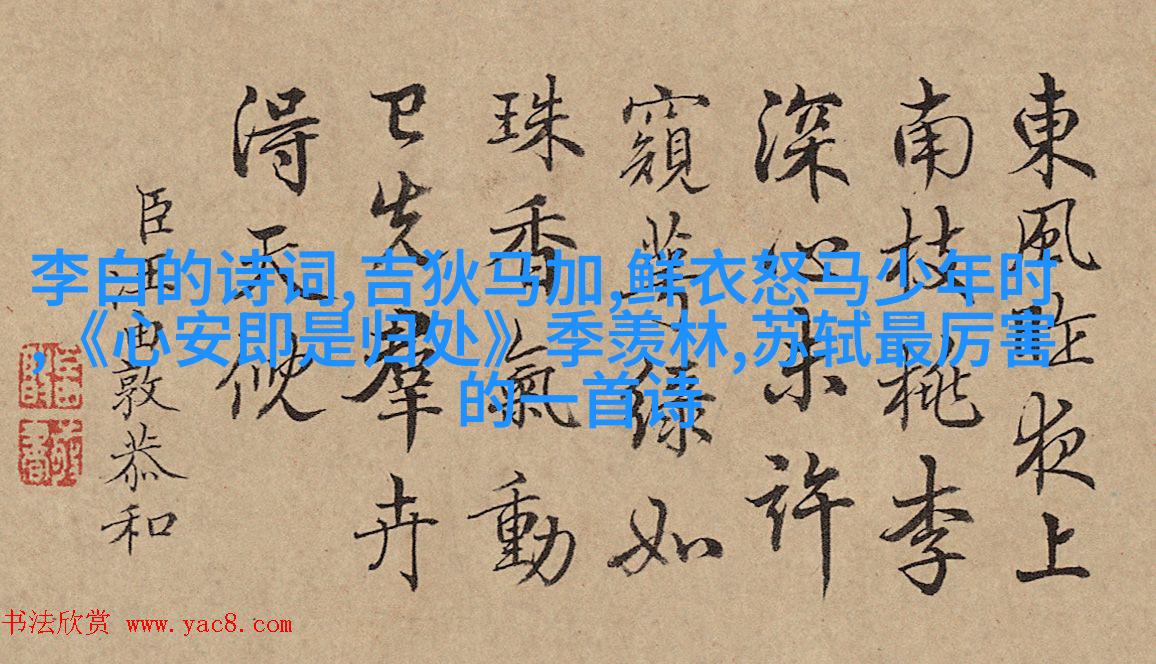 東風昨夜上
南枝桃李
深心未許
窺萼綠如
珠香氣動
已先羣卉
得天倪
臣汪由敦恭和
李白的诗词,吉狄马加,鲜衣怒马少年时
,《心安即是归处》 季羡林,苏轼最厉害
的一首诗
书法欣赏 www.yac8.com